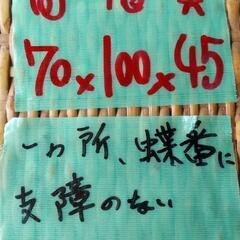 70×100×45
一ヵ所、蝶番に
支障のない